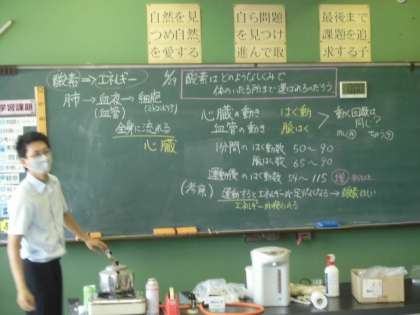 自然を見
つめ自然
を愛する
自ら問題
を見つけ
進んで取
最後まで
課題を追
求する子
学習課題
酸素 ⇒ エネルギー
酸素はどのようなしくみで
体のいたる所まで運ばれるのだろう
肺 → 血液 → 細胞
(血管)
全身に流れる
心臓
心臓の動き はく動
血管の動き 脈はく
動く回数は
同じ?
1分間のはく動数 50～90
脈はく数 65～90
運動後のはく動数 54～115 増
(考察) 運動するとエネルギーが